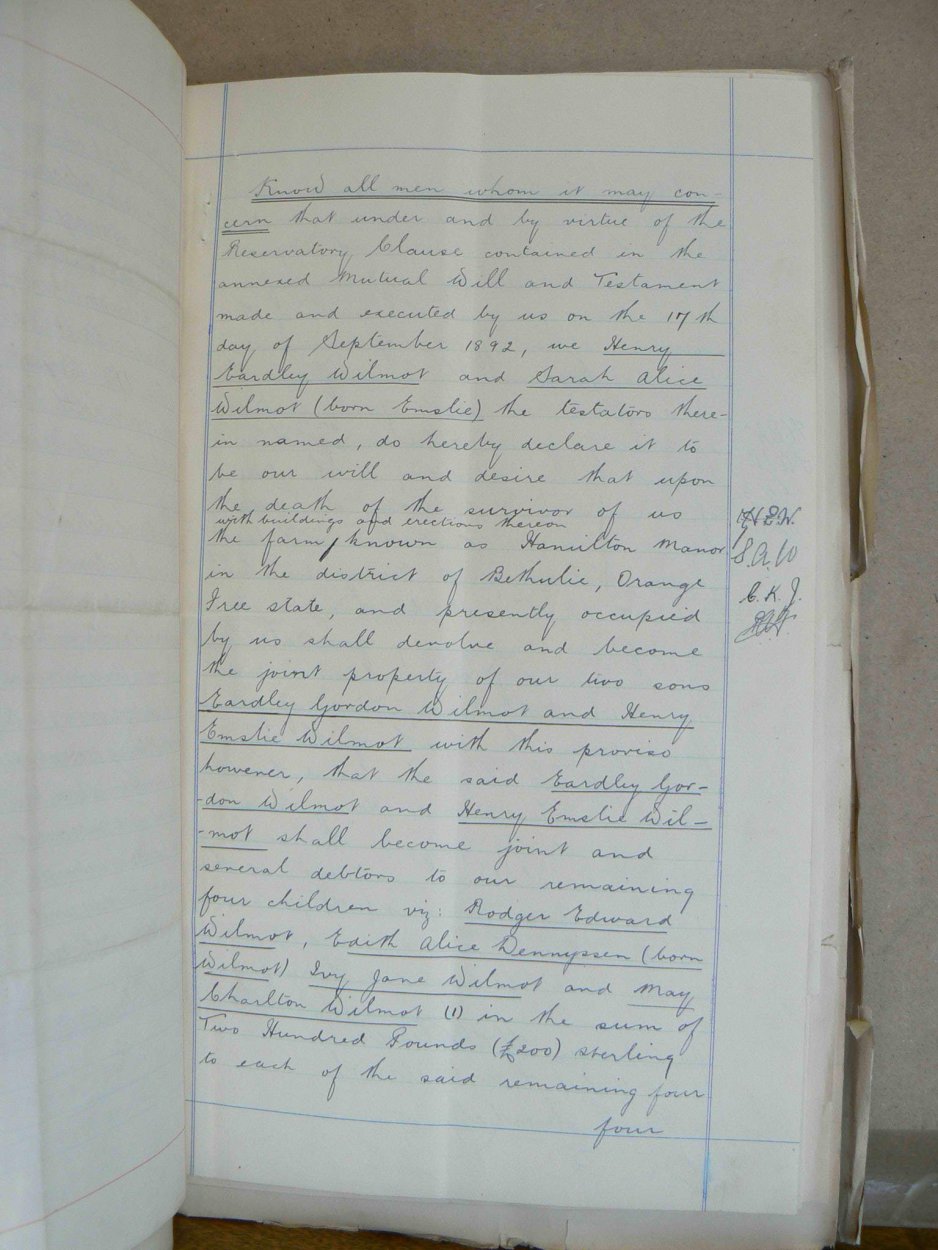 Know all men whom it may con-
cern that under and by virtue of the
Reservatory Clause contained in the
annexed Mutual Will and Testament
made and executed by us on the 17th
day of September 1892, we Henry
Eardley Wilmot and Sarah Alice
Wilmot (born Emslie) the testators there-
in named, do hereby declare it to
be our will and desire that upon
the death of the survivor of us
with buildings and erections thereon
the farm / known as Hamilton Manor
in the district of Bethulie, Orange
Free State, and presently occupied
by us shall devolve and become
the joint property of our two sons
Eardley Gordon Wilmot and Henry
Emslie Wilmot with this proviso
however, that the said Eardley Gor-
-don Wilmot and Henry Emslie Wil-
-mot shall become joint and
several debtors to our remaining
four children viz: Rodger Edward
Wilmot, Edith Alice Dennyssen (born
Wilmot) Ivy Jane Wilmot and May
Charlton Wilmot (1) in the sum of
Two Hundred Pounds (£200) sterling
to each of the said remaining four
four
H.E.W.
S.A.W
C.K.J.